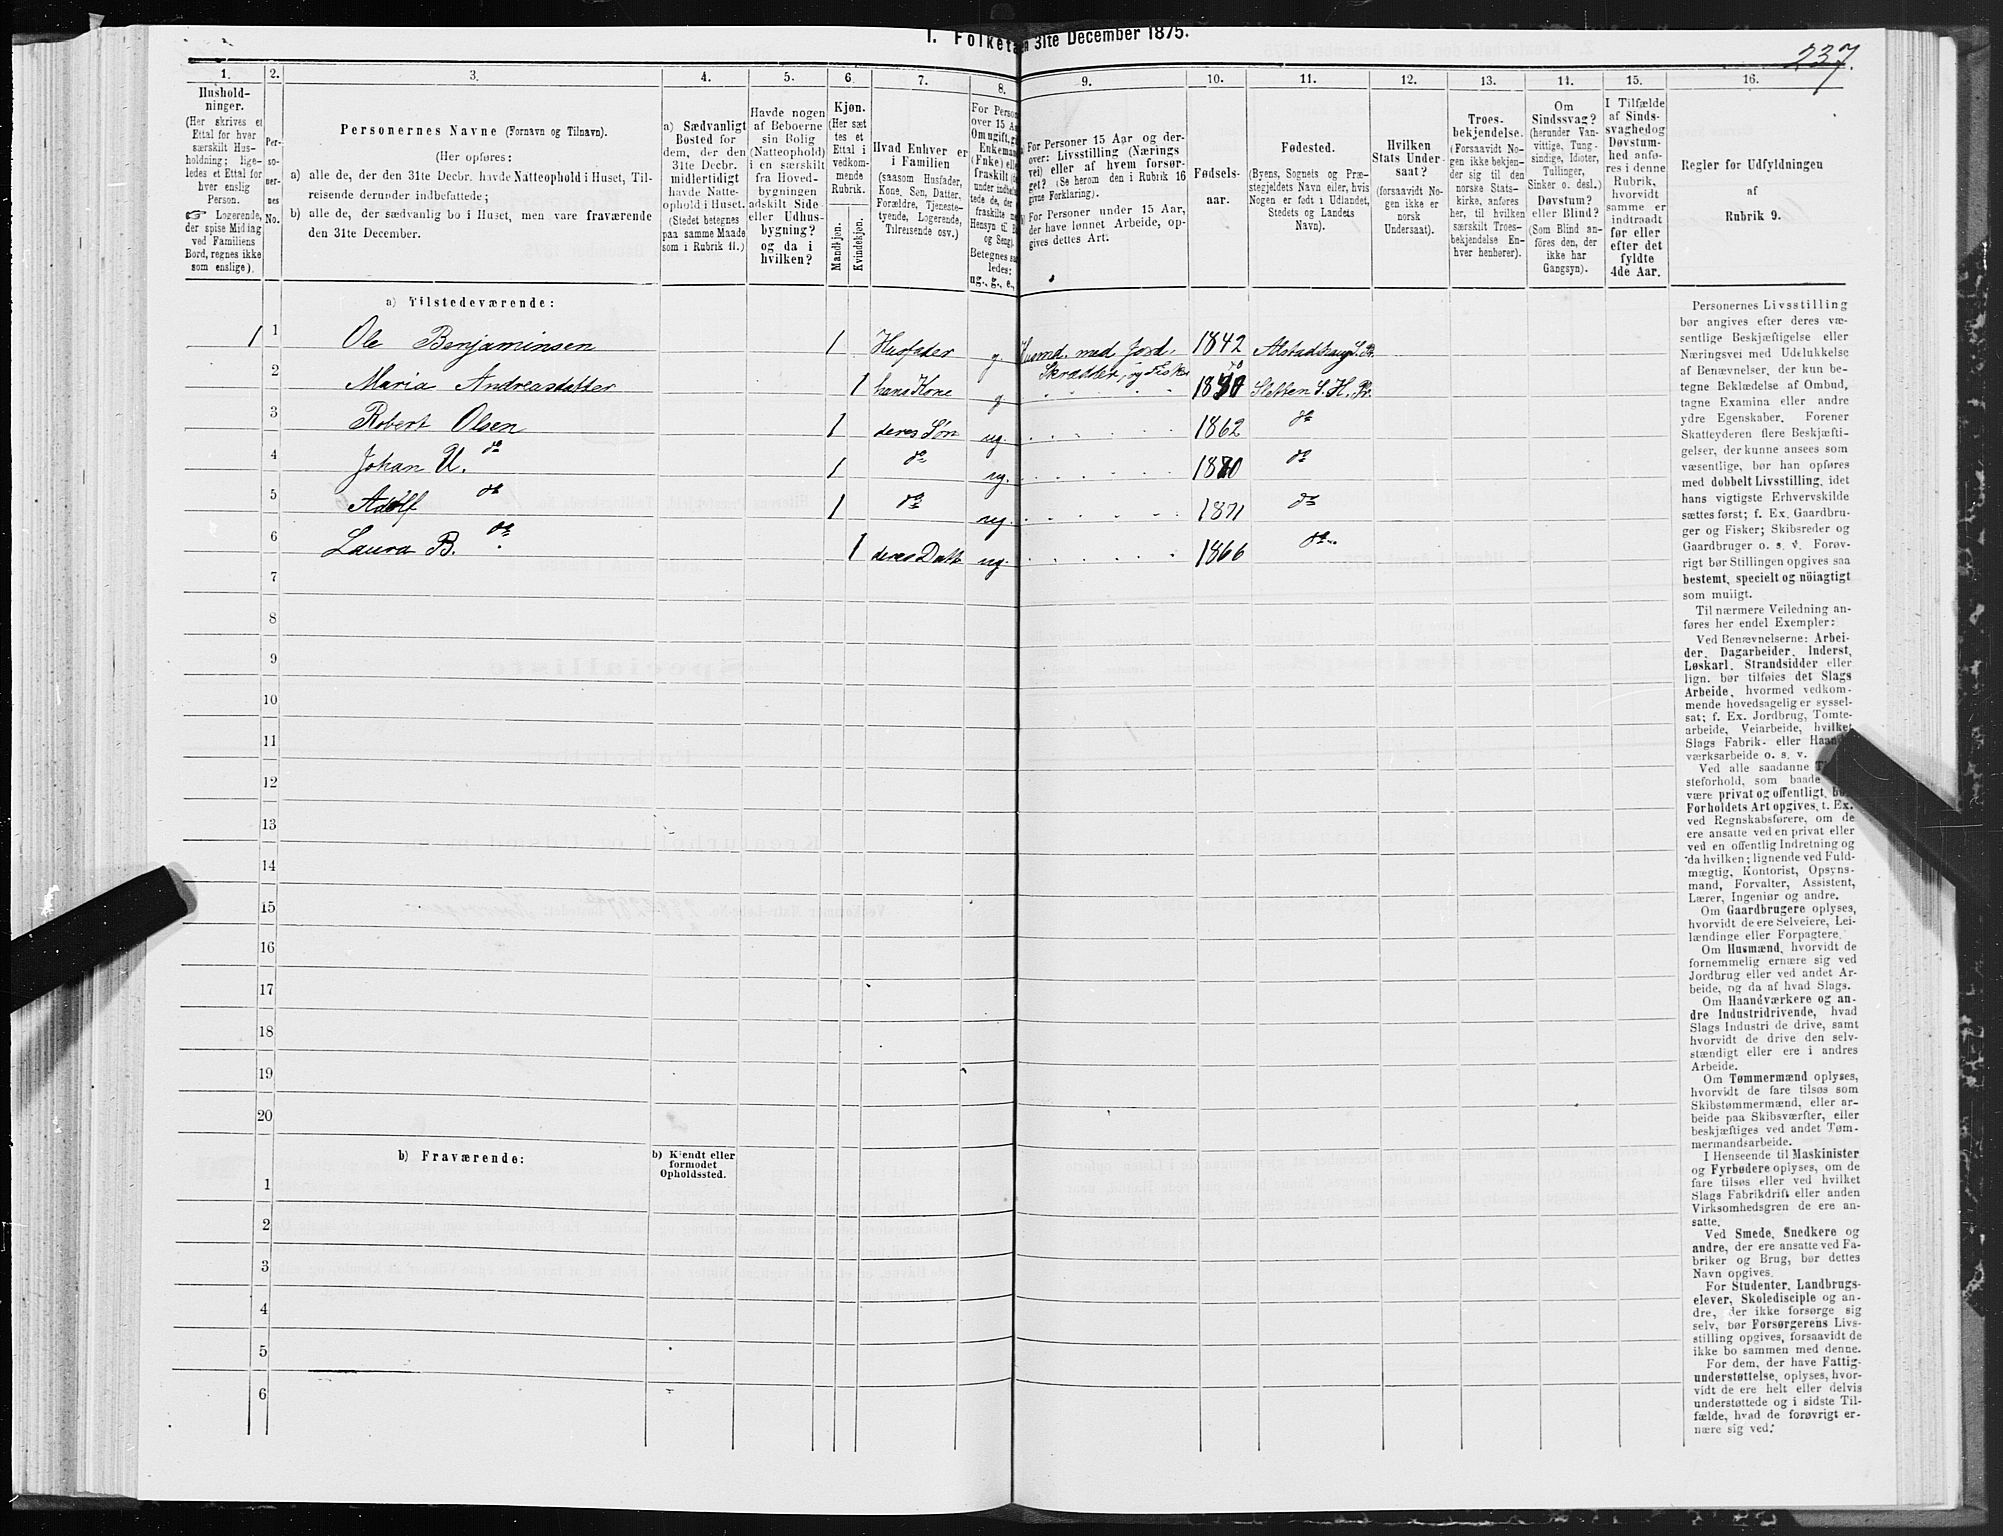 I. Folketæ
31te December 1875.
237.
1.
2.
3.
4.
5.
6.
7.
8.
9.
10.
11.
12.
13.
14.
15.
16.
Hushold-
ninger.
(Her skrives et
Ettal for hver
særskilt Hus-
holdning; lige-
ledes et Ettal for
hver enslig
Person.
☞ Logerende,
der spise Middag
ved Familiens
Bord, regnes ikke
som enslige).
Per-
so-
ner-
nes
No.
Personernes Navne (Fornavn og Tilnavn).
(Her opføres:
a) alle de, der den 31te Decbr. havde Natteophold i Huset, Til-
reisende derunder indbefattede;
b) alle de, der sædvanlig bo i Huset, men vare fraværende
den 31te December.
a) Sædvanligt
Bosted for
dem, der den
31te Decbr.
midlertidigt
havde Natte-
ophold i Huset.
(Stedet betegnes
paa samme Maade
som i Rubrik 11.)
Havde nogen
af Beboerne
sin Bolig
(Natteophold)
i en særskilt
fra Hoved-
bygningen
adskilt Side-
eller Udhus-
bygning?
og da i
hvilken?
Kjøn.
(Her sæt-
tes et
Ettal i
vedkom-
mende
Rubrik.
Mandkjøn.
Kvindekjøn.
Hvad Enhver er
i Familien
(saasom Husfader,
Kone, Søn, Datter,
Forældre, Tjeneste-
tyende, Logerende,
Tilreisende osv.)
For Person
over 15 Aa
Om ugift, gi
Enkemand
(Fnke) elle
fraskilt
under indbef
tede de, der
fraskilte
Hensyn til B
og Seng).
Betegnes saa
ledes:
ug., g., e.,
For Personer 15 Aar og der-
over: Livsstilling (Nærings
vei) eller af hvem forsør-
get? (Se herom den i Rubrik 16
givne Forklaring).
For Personer under 15 Aar,
der have lønnet Arbeide, op-
gives dettes Art.
Fødsels-
aar.
Fødested.
(Byens, Sognets og Præ-
stegjeldets Navn eller, hvis
Nogen er født i Udlandet,
Stedets og Landets
Navn).
Hvilken
Stats Under-
saat?
(forsaavidt No-
gen ikke er
norsk
Undersaat).
Troes-
bekjendelse.
(Forsaavidt No-
gen ikke bekjen-
der sig til den
norske Stats-
kirke, anføres
her, til hvilken
særskilt Troes-
bekjendelse En-
hver henhører).
Om
Sindssvag?
(herunder Van-
vittige, Tung-
sindige, Idioter,
Tullinger,
Sinker o. desl.)
Døvstum?
eller Blind?
(Som Blind an-
føres den, der
ikke har
Gangsyn).
I Tilfælde
af Sinds-
svaghedog
Døvstum-
hed anfø-
res i denne
Rubrik,
hvorvidt
samme er
indtraadt
før eller
efter det
fyldte
4de Aar.
Regler for Udfyldningen
af
Rubrik 9.
a) Tilstedeværende:
1 1 Ole Benjaminsen 1 Husfader g. Husmd. med Jord, Skrædder, og Fisker 1842 Alstadhaug S. Pr.
2 Maria Andreasdatter 1 hans Kone g 40 Sletten S. H. Pr.
3 Robert Olsen 1 deres Søn ug. 1862 do
4 Johan U. do 1 do ug. 1870 do
5 Adolf do 1 do ug. 1871 do
6 Laura B. do 1 deres Datt ug. 1866 do
7
8
9
10
11
12
13
14
15
16
17
18
19
20
b) Fraværende:
b) Kjendt eller
formodet
Opholdssted.
1
2
3
4
5
6
Personernes Livsstilling
bør angives efter deres væ-
sentlige Beskjæftigelse eller
Næringsvei med Udelukkelse
af Benævnelser, der kun be-
tegne Beklædelse af Ombud,
tagne Examina eller andre
ydre Egenskaber. Forener
Skatteyderen flere Beskjæfti-
gelser, der kunne ansees som
væsentlige, bør han opføres
med dobbelt Livsstilling, idet
hans vigtigste Erhvervskilde
sættes først; f. Ex. Gaardbru-
ger og Fisker; Skibsreder og
Gaardbruger o. s. v. Forøv-
rigt bør Stillingen opgives saa
bestemt, specielt og nöiagtigt
som muligt.
Til nærmere Veiledning an-
føres her endel Exempler:
Ved Benævnelserne: Arbei-
der, Dagarbeider, Inderst,
Løskarl, Strandsidder eller
lign. bør tilføies det Slags
Arbeide, hvormed vedkom-
mende hovedsagelig er syssel-
sat; f. Ex. Jordbrug, Tomte-
arbeide, Veiarbeide, hvilket
Slags Fabrik- eller Haand-
værksarbeide o. s. v.
Ved alle saadanne
steforhold, som baade
være privat og offentligt,
Forholdets Art opgives, t. Ex.
ved Regnskabsførere, om de
ere ansatte ved en privat eller
ved en offentlig Indretning og
da hvilken; lignende ved Fuld-
mægtig, Kontorist, Opsyns-
mand, Forvalter, Assistent,
Lærer, Ingeniør og andre.
Om Gaardbrugere oplyses,
hvorvidt de ere Selveiere, Lei-
lændinge eller Forpagtere.
Om Husmænd, hvorvidt de
fornemmelig ernære sig ved
Jordbrug eller ved andet Ar-
beide, og da af hvad Slags.
Om Haandværkere og an-
dre Industridrivende, hvad
Slags Industri de drive, samt
hvorvidt de drive den selv-
stændigt eller ere i andres
Arbeide.
Om Tømmermænd oplyses,
hvorvidt de fare tilsøs som
Skibstømmermænd, eller ar-
beide paa Skibsværfter, eller
beskjæftiges ved andet Tøm-
mermandsarbeide.
I Henseende til Maskinister
og Fyrbødere oplyses, om de
fare tilsøs eller ved hvilket
Slags Fabrikdrift eller anden
Virksomhedsgren de ere an-
satte.
Ved Smede, Snedkere og
andre, der ere ansatte ved Fa-
briker og Brug, bør dettes
Navn opgives.
For Studenter, Landbrugs-
elever, Skoledisciple og an-
dre, der ikke forsørge sig
selv, bør Forsørgerens Livs-
stilling opgives, forsaavidt de
ikke bo sammen med denne.
For dem, der have Fattig-
understøttelse, oplyses, hvor-
vidt de ere helt eller delvis
understøttede og i sidste Til-
fælde, hvad de forøvrigt er-
nære sig ved.